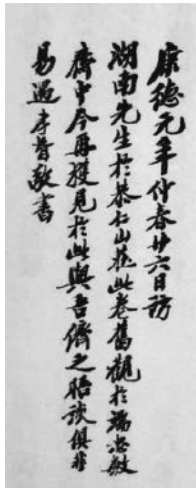 康德元年仲春廿六日訪
湖南先生於恭仁山莊此卷舊觀於端忠敏
齋中今再獲見於此與吾儕之晤談俱非
易遇孝胥敬書